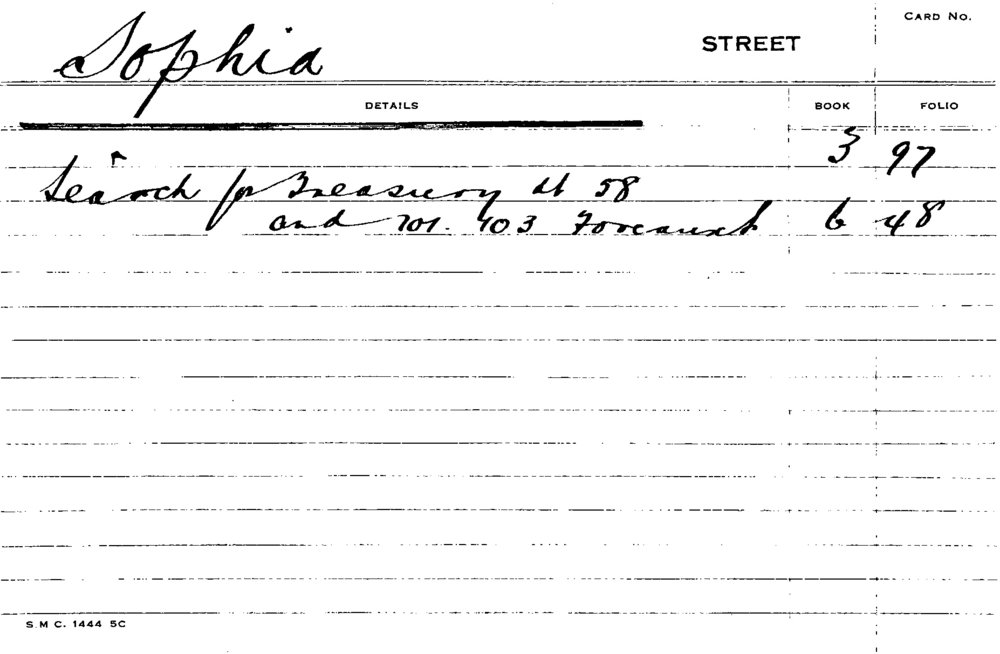 CARD NO.
Sophia STREET
DETAILS BOOK FOLIO
3 97
Search for Treasury at 58
and 701. 703 Foveaux St 6 48
S.M C. 1444 5C